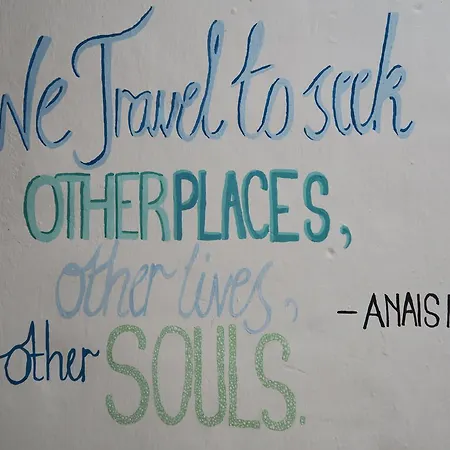 We Travel to seek
OTHER PLACES,
other lives,
- ANAIS
other SOULS.